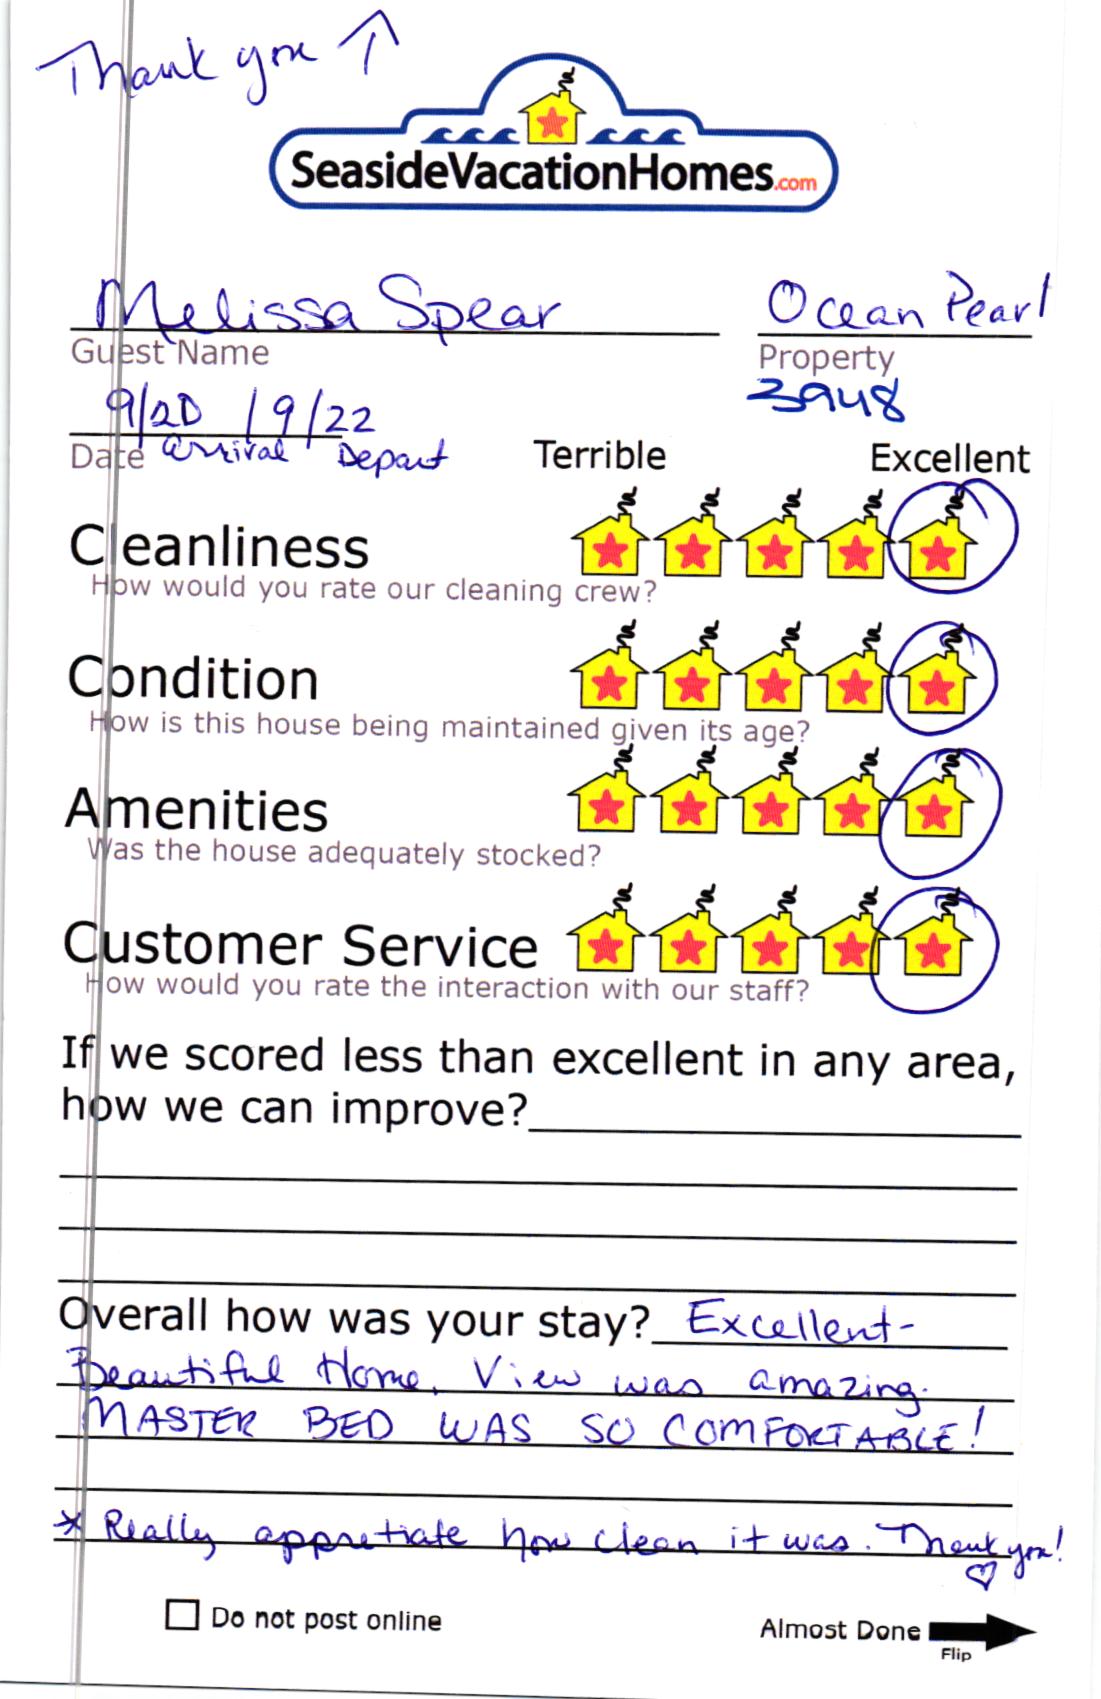 Thank you ↑
SeasideVacationHomes.com
Melissa Spear
Ocean Pearl
Guest Name
Property
9/20 / 9/22
3948
Date Arrival Depart
Terrible
Excellent
Cleanliness
How would you rate our cleaning crew?
Condition
How is this house being maintained given its age?
Amenities
Was the house adequately stocked?
Customer Service
How would you rate the interaction with our staff?
If we scored less than excellent in any area,
how we can improve?
Overall how was your stay? Excellent-
Beautiful Home. View was amazing.
MASTER BED WAS SO COMFORTABLE!
* Really appretiate how clean it was. Thank you!
♡
Do not post online
Almost Done
Flip